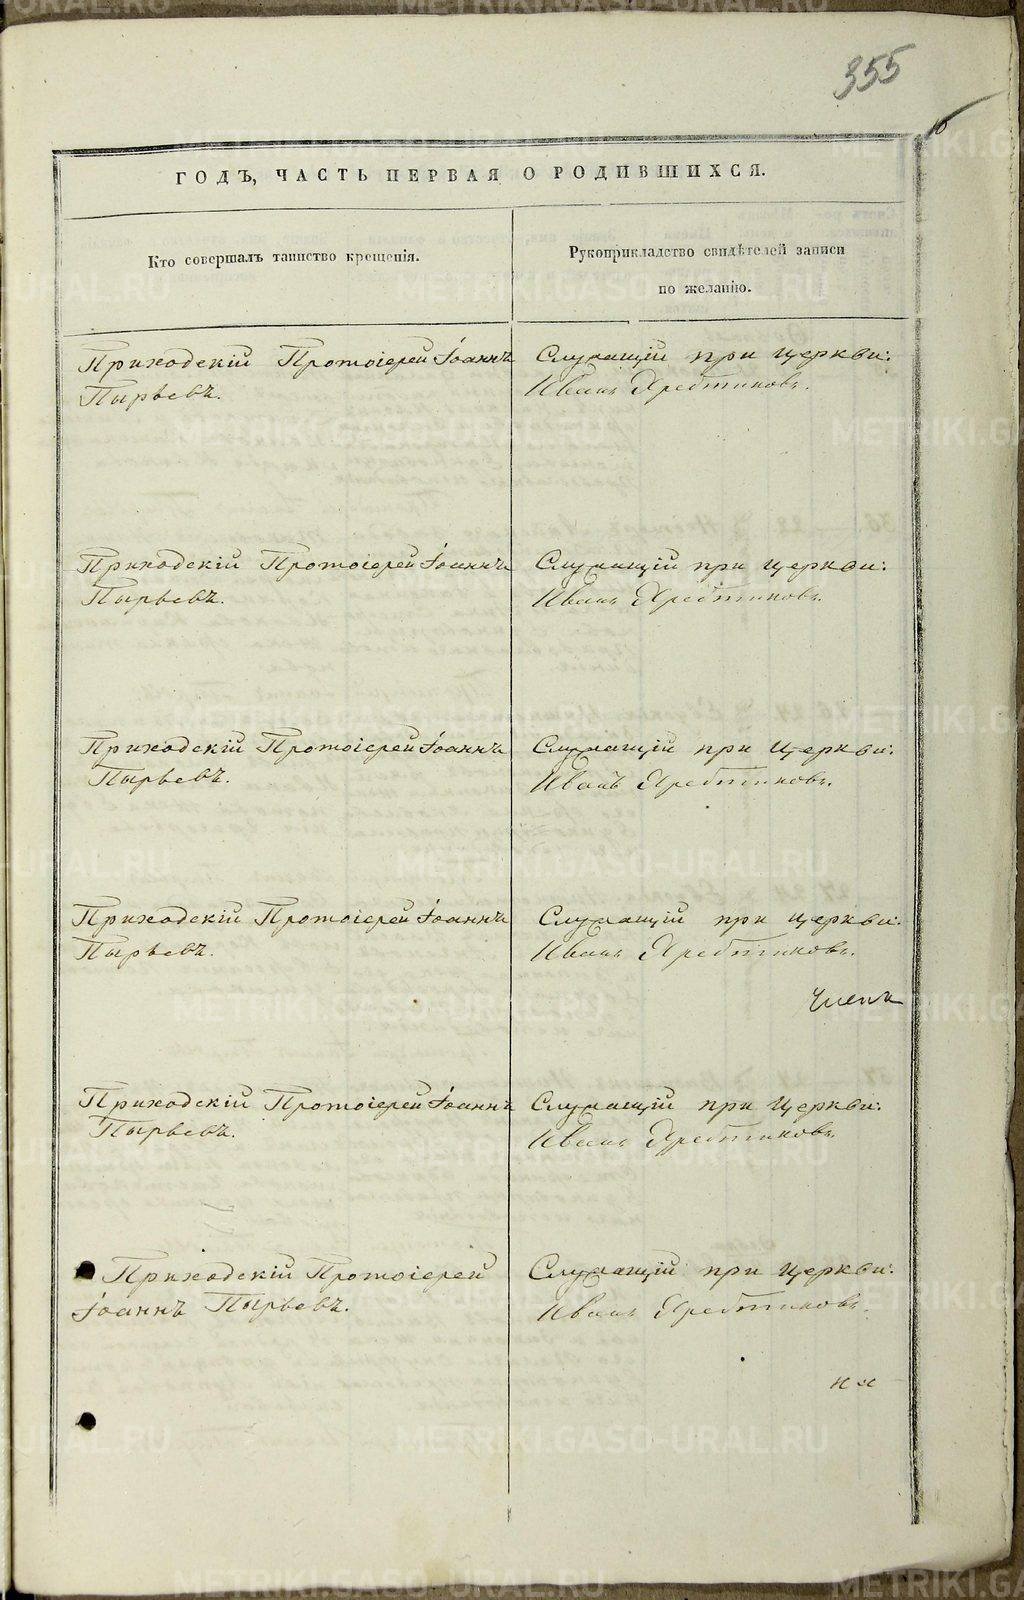 355
16
ГОДЪ, ЧАСТЬ ПЕРВАЯ О РОДИВШИХСЯ.
Кто совершалъ таинство крещенія.
Рукоприкладство свидѣтелей записи
по желанію.
Приходскій Протоіерей Іоаннъ
Пырьевъ.
Служащій при церкви:
Иванъ
Приходскій Протоіерей Іоаннъ
Пырьевъ.
Служащій при церкви:
Иванъ
Приходскій Протоіерей Іоаннъ
Пырьевъ.
Служащій при церкви:
Иванъ
Приходскій Протоіерей Іоаннъ
Пырьевъ.
Служащій при церкви:
Иванъ
Членъ
Приходскій Протоіерей Іоаннъ
Пырьевъ.
Служащій при церкви:
Иванъ
Приходскій Протоіерей
Іоаннъ Пырьевъ.
Служащій при церкви:
Иванъ
METRIKI.GASO-URAL.RU